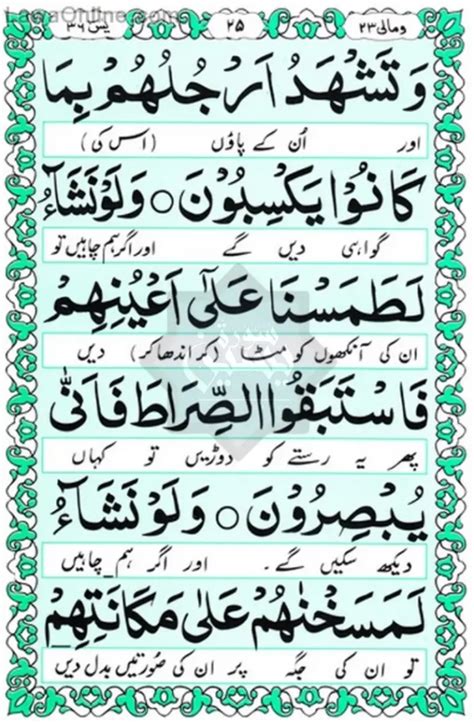 ومالی ۲۳ ۲۵ یٰسٓ ۳۶
وَتَشْهَدُ اَرْجُلُهُمْ بِمَا
اور اُن کے پاؤں (اس کی)
كَانُوْا يَكْسِبُوْنَ ○ وَلَوْ نَشَآءُ
گواہی دیں گے اور اگر ہم چاہیں تو
لَطَمَسْنَا عَلٰٓى اَعْيُنِهِمْ
ان کی آنکھوں کو مٹا (کر اندھا کر) دیں
فَاسْتَبَقُوا الصِّرَاطَ فَاَنّٰى
پھر یہ رستے کو دوڑیں تو کہاں
يُبْصِرُوْنَ ○ وَلَوْ نَشَآءُ
دیکھ سکیں گے۔ اور اگر ہم چاہیں
لَمَسَخْنٰهُمْ عَلٰى مَكَانَتِهِمْ
تو ان کی جگہ پر ان کی صُورتیں بدل دیں